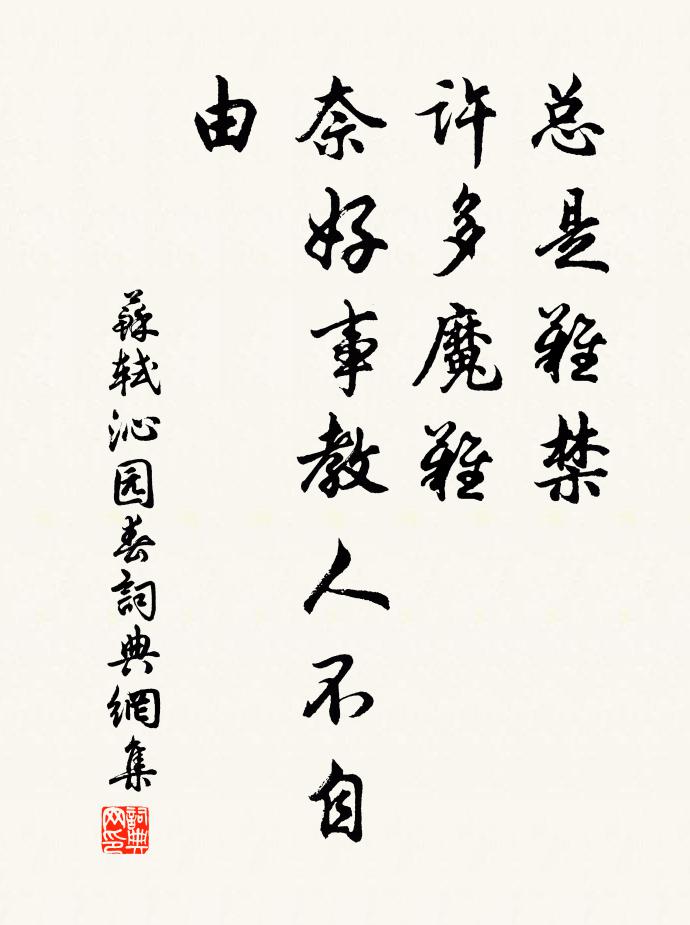 总是難禁
许多魔難
奈好事教人不自
由
蘇轼沁园春詞典網集
詞典网印